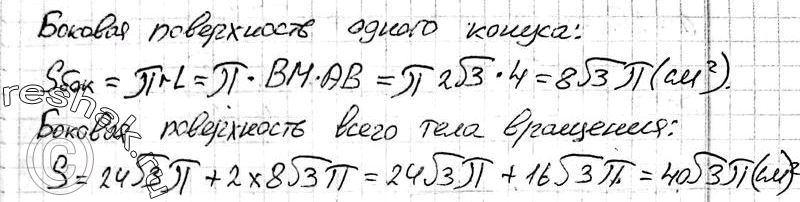 Боковая поверхность одного конуса:
Sбок = πrL = π · BM · AB = π 2√3 · 4 = 8√3 π (см²).
Боковая поверхность всего тела вращения:
S = 24√3 π + 2 × 8√3 π = 24√3 π + 16√3 π = 40√3 π (см)²
reshak.ru